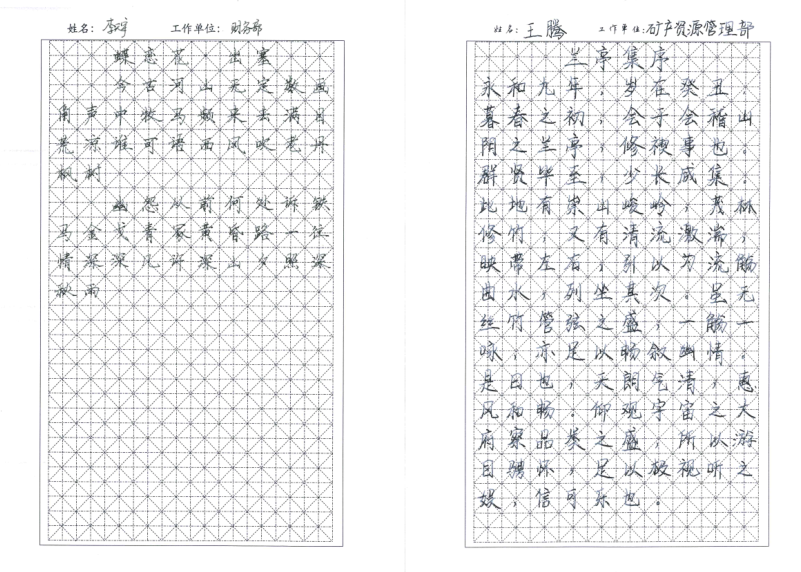 姓名：李宇 工作单位：财务部
蝶恋花·出塞
今古河山无定数画
角声中牧马频来去满目
荒凉谁可语西风吹老丹
枫树
幽怨从前何处诉铁
马金戈青冢黄昏路一往
情深深几许深山夕照深
秋雨
姓名：王腾 工作单位：矿产资源管理部
兰亭集序
永和九年，岁在癸丑，
暮春之初，会于会稽山
阴之兰亭，修禊事也。
群贤毕至，少长咸集。
此地有崇山峻岭，茂林
修竹，又有清流激湍，
映带左右，引以为流觞
曲水，列坐其次。虽无
丝竹管弦之盛，一觞一
咏，亦足以畅叙幽情。
是日也，天朗气清，惠
风和畅。仰观宇宙之大
府察品类之盛，所以游
目骋怀，足以极视听之
娱，信可乐也。